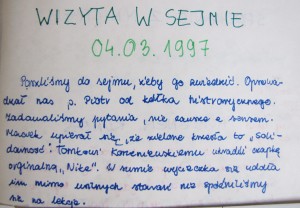 WIZYTA W SEJMIE
04.03.1997
Poszliśmy do sejmu, żeby go zwiedzić. Oprowa-
dzał nas p. Piotr od kółka historycznego.
Zadawaliśmy pytania, nie zawsze z sensem.
Maciek upierał się, że zielone krzesła to „Soli-
darność". Tomkowi Korzeniewskiemu ukradli czapkę
orginalną „Nike". W sumie wycieczka się udała
mimo usilnych starań nie spóźniliśmy
się na lekcje.